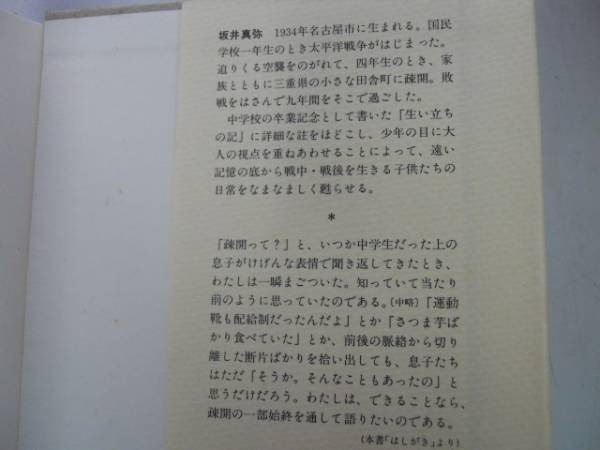 坂井真弥　1934年名古屋市に生まれる。国民
学校一年生のとき太平洋戦争がはじまった。
迫りくる空襲をのがれて、四年生のとき、家
族とともに三重県の小さな田舎町に疎開。敗
戦をはさんで九年間をそこで過ごした。
　中学校の卒業記念として書いた「生い立ち
の記」に詳細な註をほどこし、少年の目に大
人の視点を重ねあわせることによって、遠い
記憶の底から戦中・戦後を生きる子供たちの
日常をなまなましく甦らせる。
*
「疎開って？」と、いつか中学生だった上の
息子がけげんな表情で聞き返してきたとき、
わたしは一瞬まごついた。知っていて当たり
前のように思っていたのである。（中略）「運動
靴も配給制だったんだよ」とか「さつま芋ば
かり食べていた」とか、前後の脈絡から切り
離した断片ばかりを拾い出しても、息子たち
はただ「そうか。そんなこともあったの」と
思うだけだろう。わたしは、できることなら、
疎開の一部始終を通して語りたいのである。
（本書「はしがき」より）